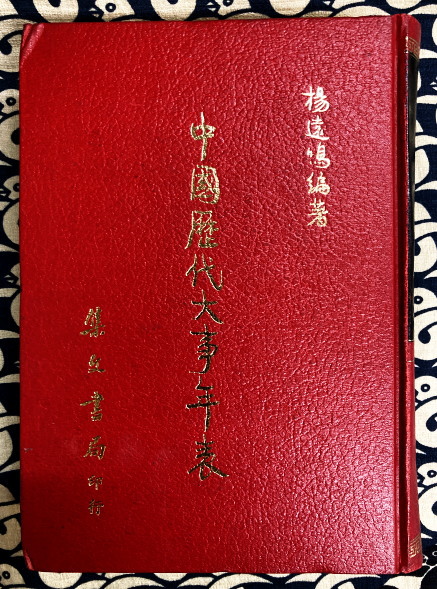 楊遠鳴編著
中國歷代大事年表
集文書局印行